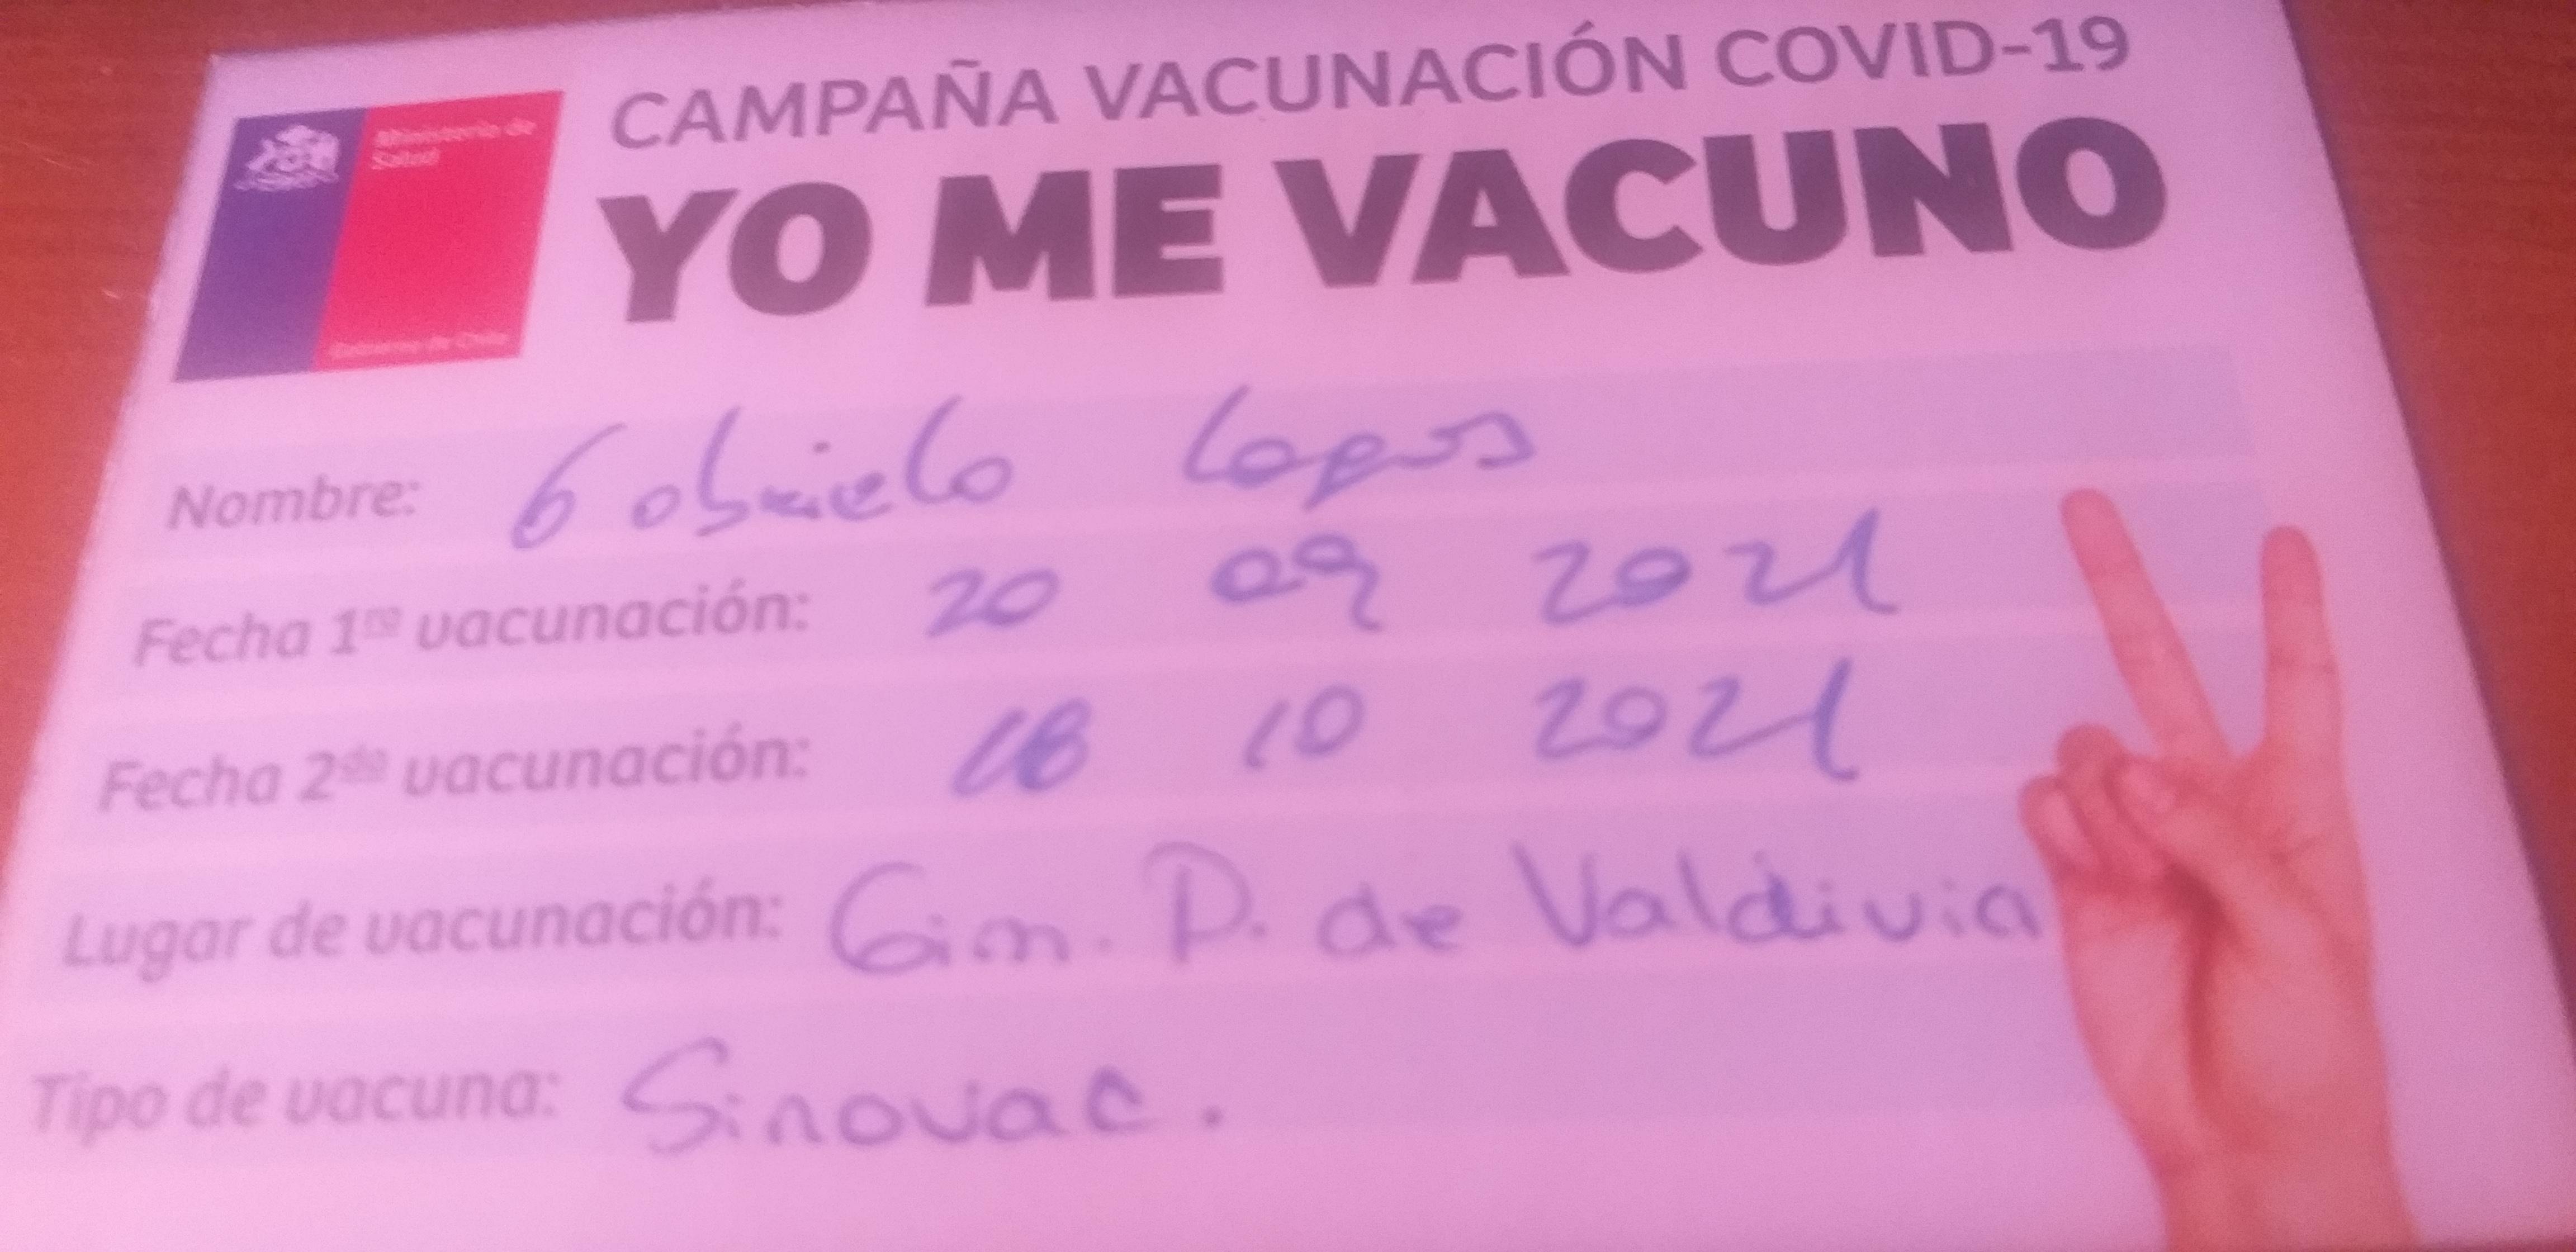 Ministerio de
Salud
Gobierno de Chile
CAMPAÑA VACUNACIÓN COVID-19
YO ME VACUNO
Nombre: Gabriela
Fecha 1ra vacunación: 20 09 2021
Fecha 2da vacunación: 18 10 2021
Lugar de vacunación: Gim. P. de Valdivia
Tipo de vacuna: Sinovac.